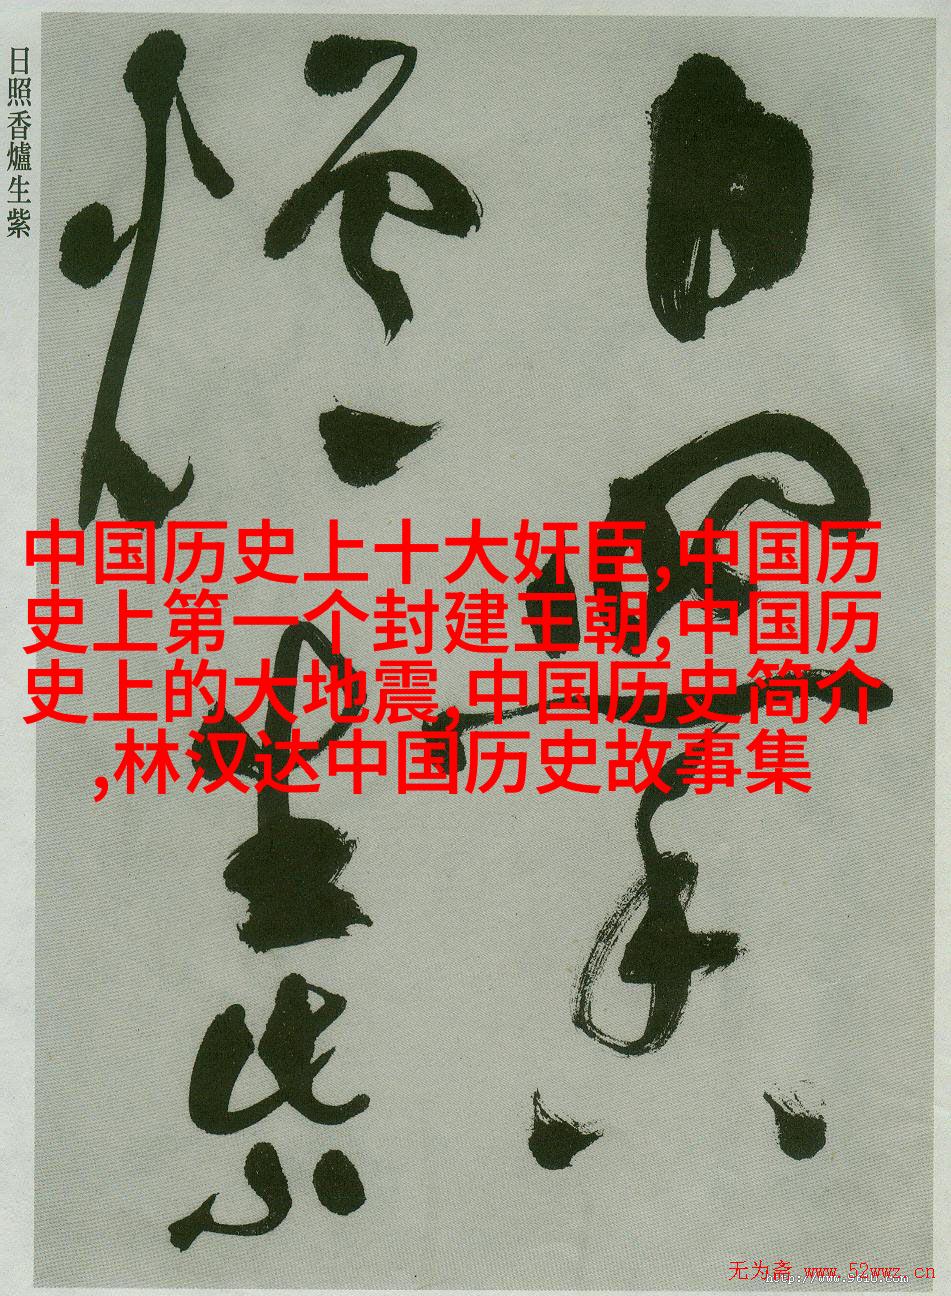 日照香爐生紫
日照香
爐生紫
中国历史上十大奸臣,中国历
史上第一个封建王朝,中国历
史上的大地震,中国历史简介
,林汉达中国历史故事集
无为斋 www.52wwz.cn
http://www.9610.com